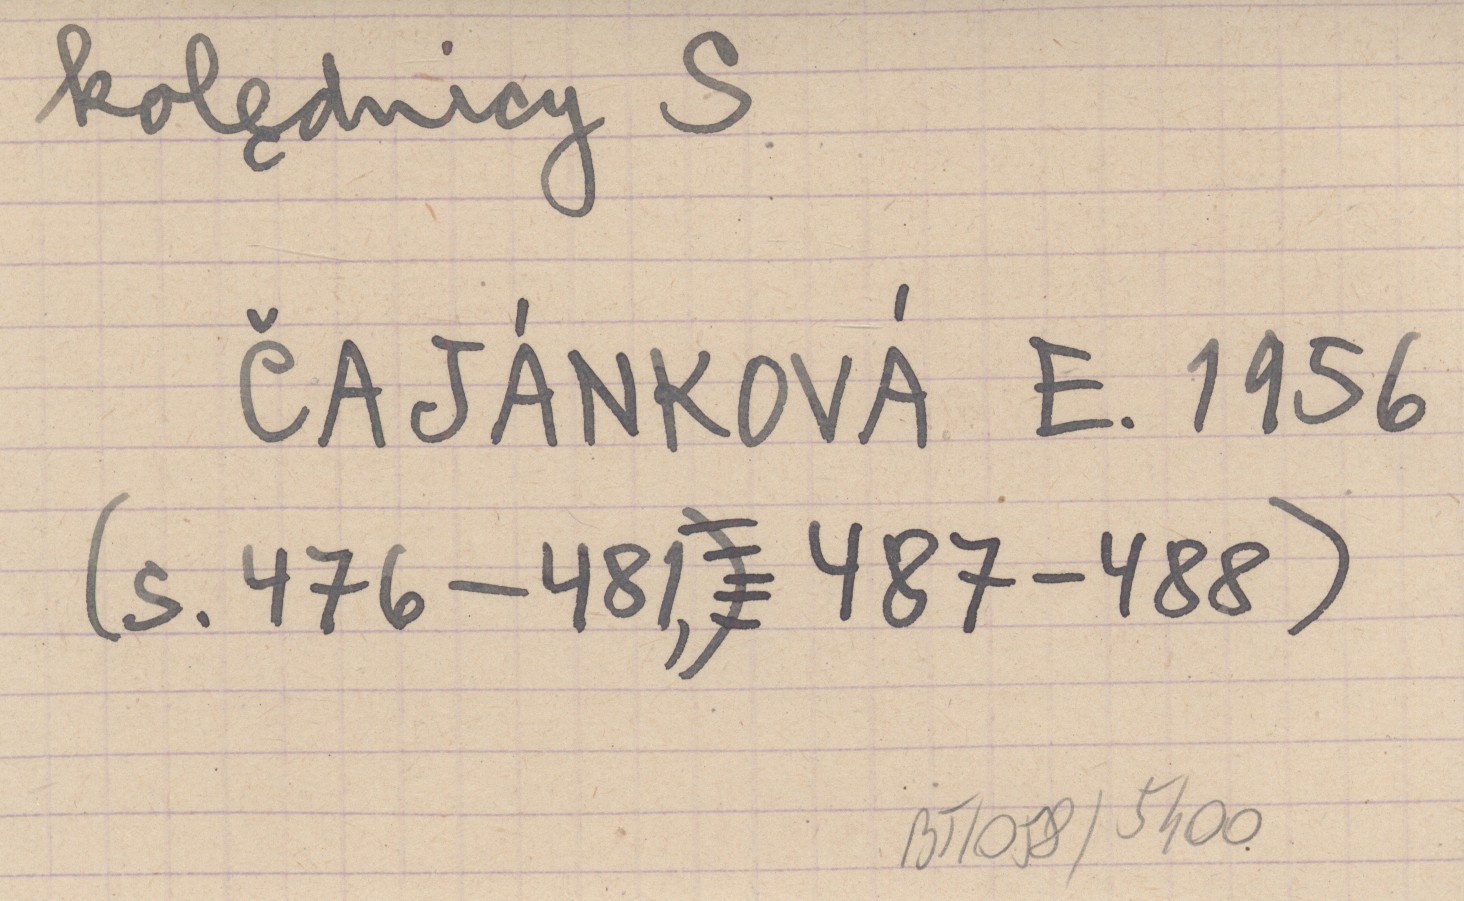 kolędnicy S
ČAJÁNKOVÁ E. 1956
(s. 476-481, 487-488)
BT/058/5400